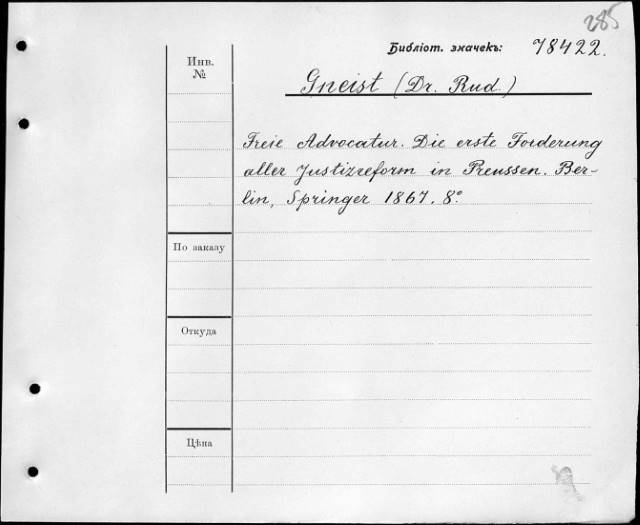 285
Библіот. значекъ: 78422.
Инв.
№
Gneist (Dr. Rud.)
Freie Advocatur. Die erste Forderung
aller Justizreform in Preussen. Ber-
lin, Springer 1867. 8°.
По заказу
Откуда
Цѣна